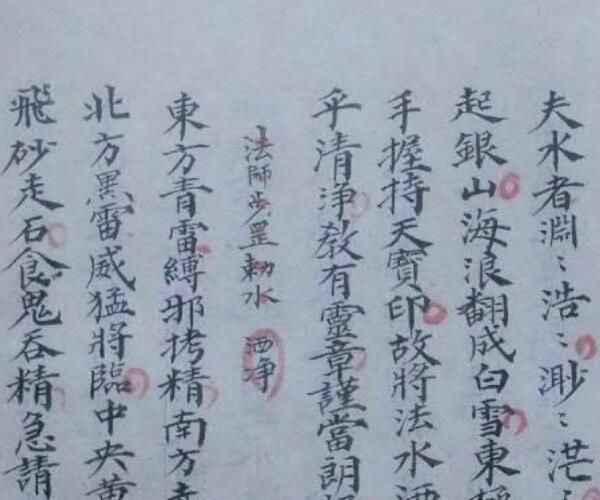 夫水者淵〻浩〻渺〻茫
起銀山海浪翻成白雪東
手握持天寶印故將法水
乎清淨教有靈章謹當朗
法師步罡勅水 洒净
東方青雷縛邪拷精南方
北方黑雷威猛將臨中央黄
飛砂走石食鬼吞精急請